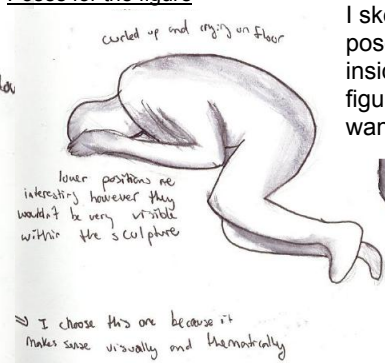 Poses for the figure
curled up and crying on floor
I sk
pos
insid
figu
wan
lower positions are
interesting however they
wouldn't be very visible
within the sculpture
⇒ I choose this one because it
makes sense visually and thematically